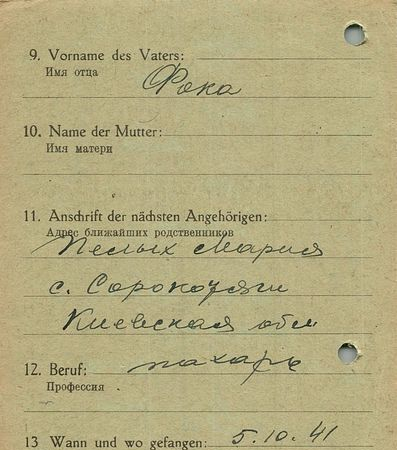 9. Vorname des Vaters:
Имя отца
Фока
10. Name der Mutter:
Имя матери
11. Anschrift der nächsten Angehörigen:
Адрес ближайших родственников
Пелых Мария
с. Сорокотяги
Киевская обл
12. Beruf: пахарь
Профессия
13 Wann und wo gefangen: 5.10.41